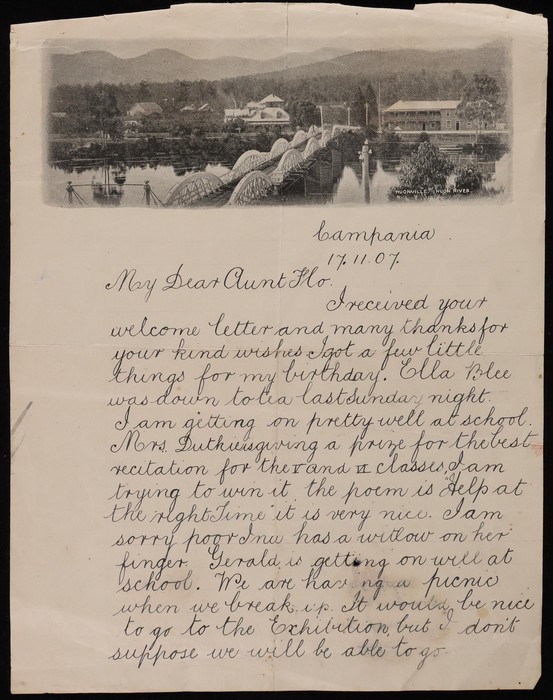 HUONVILLE, HUON RIVER.
Campania.
17.11.07.
My Dear Aunt Flo.
I received your
welcome letter and many thanks for
your kind wishes I got a few little
things for my birthday. Ella Blee
was down to tea last Sunday night.
I am getting on pretty well at school.
Mrs. Duthie is giving a prize for the best
recitation for the V and VI classes, I am
trying to win it the poem is "Help at
the right Time" it is very nice. I am
sorry poor has a witlow on her
finger. Gerald is getting on will at
school. We are having a picnic
when we break up. It would be nice
to go to the Exhibition, but I don't
suppose we will be able to go